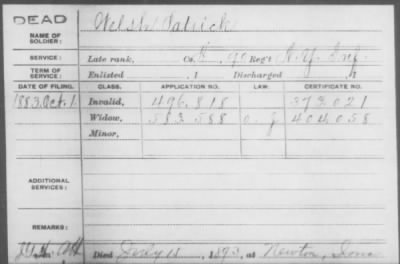 DEAD
NAME OF SOLDIER: Welsh Patrick
SERVICE: Late rank, Co. 90 Reg't N.Y. Inf.
TERM OF SERVICE: Enlisted , 1 Discharged , 1
DATE OF FILING. CLASS. APPLICATION NO. LAW. CERTIFICATE NO.
1883. Oct. 1 Invalid, 496.818 373.021
Widow, 583.588 404.058
Minor,
ADDITIONAL SERVICES:
REMARKS:
Died July 18, 1893, at Newton, Iowa